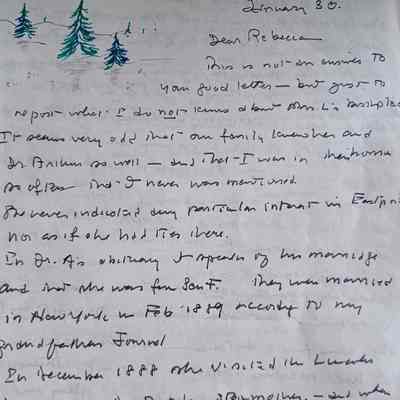 January 30.
Dear Rebecca
This is not an answer to
your good letter — but just to
report what I do not know about Mrs. L's birthplace
It seems very odd that our family knew her and
Dr. Arthur so well — and that I was in their home
so often that it never was mentioned.
She never indicated any particular interest in Eastport
nor as if she had ties there.
In Dr. A's obituary it speaks of his marriage
and that she was from San F. They were married
in New York in Feb 1889 according to my
grandfathers Journal
In December 1888 she visited the
mother, — and when